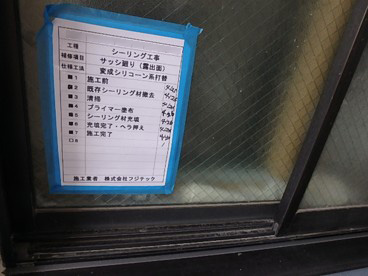 工種 シーリング工事
補修項目 サッシ廻り（露出面）
仕様工法 変成シリコーン系打替
■1 施工前
■2 既存シーリング材撤去
■3 清掃
■4 プライマー塗布
■5 シーリング材充填
■6 充填完了・ヘラ押え
■7 施工完了
□8
施工業者 株式会社フジテック